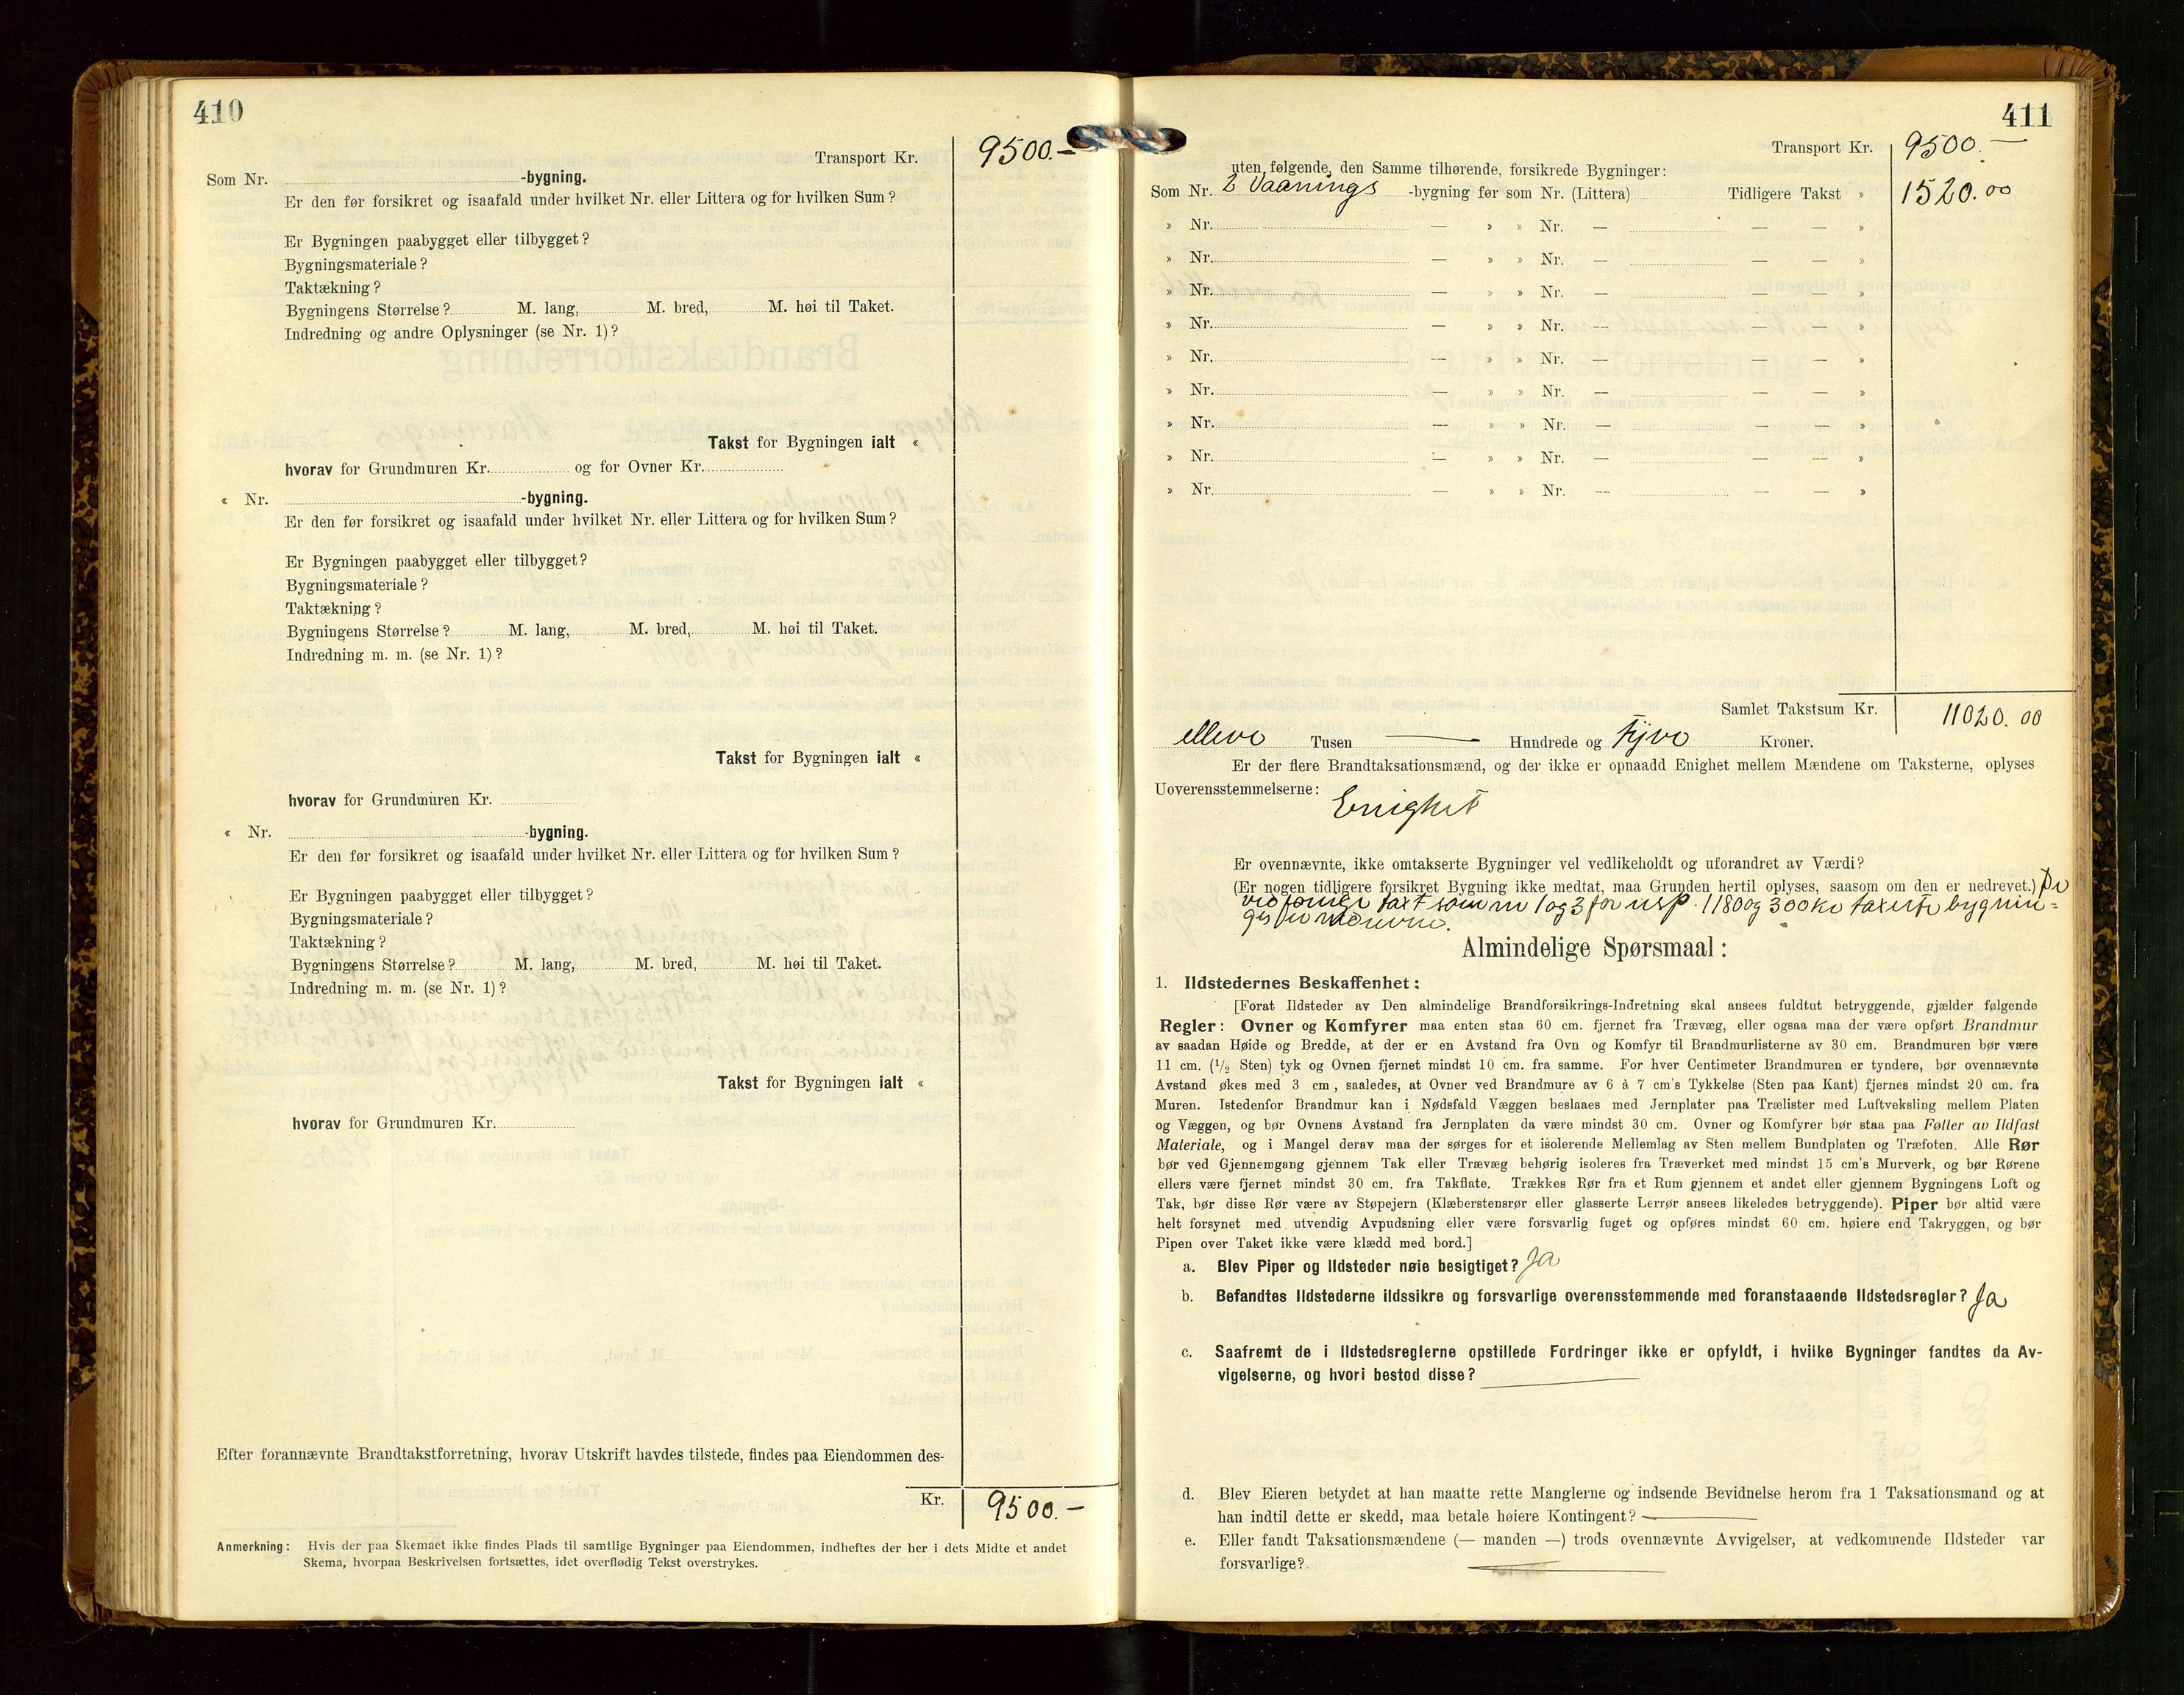 410
Transport Kr. 9500.—
Som Nr. -bygning.
Er den før forsikret og isaafald under hvilket Nr. eller Littera og for hvilken Sum?
Er Bygningen paabygget eller tilbygget?
Bygningsmateriale?
Taktækning?
Bygningens Størrelse? M. lang, M. bred, M. høi til Taket.
Indredning og andre Oplysninger (se Nr. 1)?
Takst for Bygningen ialt «
hvorav for Grundmuren Kr. og for Ovner Kr.
« Nr. -bygning.
Er den før forsikret og isaafald under hvilket Nr. eller Littera og for hvilken Sum?
Er Bygningen paabygget eller tilbygget?
Bygningsmateriale?
Taktækning?
Bygningens Størrelse? M. lang, M. bred, M. høi til Taket.
Indredning m. m. (se Nr. 1)?
Takst for Bygningen ialt «
hvorav for Grundmuren Kr.
« Nr. -bygning.
Er den før forsikret og isaafald under hvilket Nr. eller Littera og for hvilken Sum?
Er Bygningen paabygget eller tilbygget?
Bygningsmateriale?
Taktækning?
Bygningens Størrelse? M. lang, M. bred, M. høi til Taket.
Indredning m. m. (se Nr. 1)?
Takst for Bygningen ialt «
hvorav for Grundmuren Kr.
Efter forannævnte Brandtakstforretning, hvorav Utskrift havdes tilstede, findes paa Eiendommen des-
Kr. 9500.—
Anmerkning: Hvis der paa Skemaet ikke findes Plads til samtlige Bygninger paa Eiendommen, indheftes der her i dets Midte et andet
Skema, hvorpaa Beskrivelsen fortsættes, idet overflødig Tekst overstrykes.
411
Transport Kr. 9500.—
uten følgende, den Samme tilhørende, forsikrede Bygninger:
Som Nr. 2 Vaanings -bygning før som Nr. (Littera) Tidligere Takst » 1520.00
» Nr. — » » Nr. — — — »
» Nr. — » » Nr. — — — »
» Nr. — » » Nr. — — — »
» Nr. — » » Nr. — — — »
» Nr. — » » Nr. — — — »
» Nr. — » » Nr. — — — »
» Nr. — » » Nr. — — — »
» Nr. — » » Nr. — — — »
» Nr. — » » Nr. — — — »
Samlet Takstsum Kr. 11020.00
elleve Tusen — Hundrede og tyve Kroner.
Er der flere Brandtaksationsmænd, og der ikke er opnaadd Enighet mellem Mændene om Taksterne, oplyses
Uoverensstemmelserne: Enighet
Er ovennævnte, ikke omtakserte Bygninger vel vedlikeholdt og uforandret av Værdi?
(Er nogen tidligere forsikret Bygning ikke medtat, maa Grunden hertil oplyses, saasom om den er nedrevet.) De
ved forrige taxt som nr 1 og 3 for resp. 1180 og 300 kr taxerte bygnin=
ger
Almindelige Spørsmaal:
1. Ildstedernes Beskaffenhet:
[Forat Ildsteder av Den almindelige Brandforsikrings-Indretning skal ansees fuldtut betryggende, gjælder følgende
Regler: Ovner og Komfyrer maa enten staa 60 cm. fjernet fra Trævæg, eller ogsaa maa der være opført Brandmur
av saadan Høide og Bredde, at der er en Avstand fra Ovn og Komfyr til Brandmurlisterne av 30 cm. Brandmuren bør være
11 cm. (1/2 Sten) tyk og Ovnen fjernet mindst 10 cm. fra samme. For hver Centimeter Brandmuren er tyndere, bør ovennævnte
Avstand økes med 3 cm, saaledes, at Ovner ved Brandmure av 6 à 7 cm's Tykkelse (Sten paa Kant) fjernes mindst 20 cm. fra
Muren. Istedenfor Brandmur kan i Nødsfald Væggen beslaaes med Jernplater paa Trælister med Luftveksling mellem Platen
og Væggen, og bør Ovnens Avstand fra Jernplaten da være mindst 30 cm. Ovner og Komfyrer bør staa paa Føtter av Ildfast
Materiale, og i Mangel derav maa der sørges for et isolerende Mellemlag av Sten mellem Bundplaten og Træfoten. Alle Rør
bør ved Gjennemgang gjennem Tak eller Trævæg behørig isoleres fra Træverket med mindst 15 cm's Murverk, og bør Rørene
ellers være fjernet mindst 30 cm. fra Takflate. Trækkes Rør fra et Rum gjennem et andet eller gjennem Bygningens Loft og
Tak, bør disse Rør være av Støpejern (Klæberstensrør eller glasserte Lerrør ansees likeledes betryggende). Piper bør altid være
helt forsynet med utvendig Avpudsning eller være forsvarlig fuget og opføres mindst 60 cm. høiere end Takryggen, og bør
Pipen over Taket ikke være klædd med bord.]
a. Blev Piper og Ildsteder nøie besigtiget? Ja
b. Befandtes Ildstederne ildssikre og forsvarlige overensstemmende med foranstaaende Ildstedsregler? Ja
c. Saafremt de i Ildstedsreglerne opstillede Fordringer ikke er opfyldt, i hvilke Bygninger fandtes da Av-
vigelserne, og hvori bestod disse? —
d. Blev Eieren betydet at han maatte rette Manglerne og indsende Bevidnelse herom fra 1 Taksationsmand og at
han indtil dette er skedd, maa betale høiere Kontingent? —
e. Eller fandt Taksationsmændene (— manden —) trods ovennævnte Avvigelser, at vedkommende Ildsteder var
forsvarlige? —